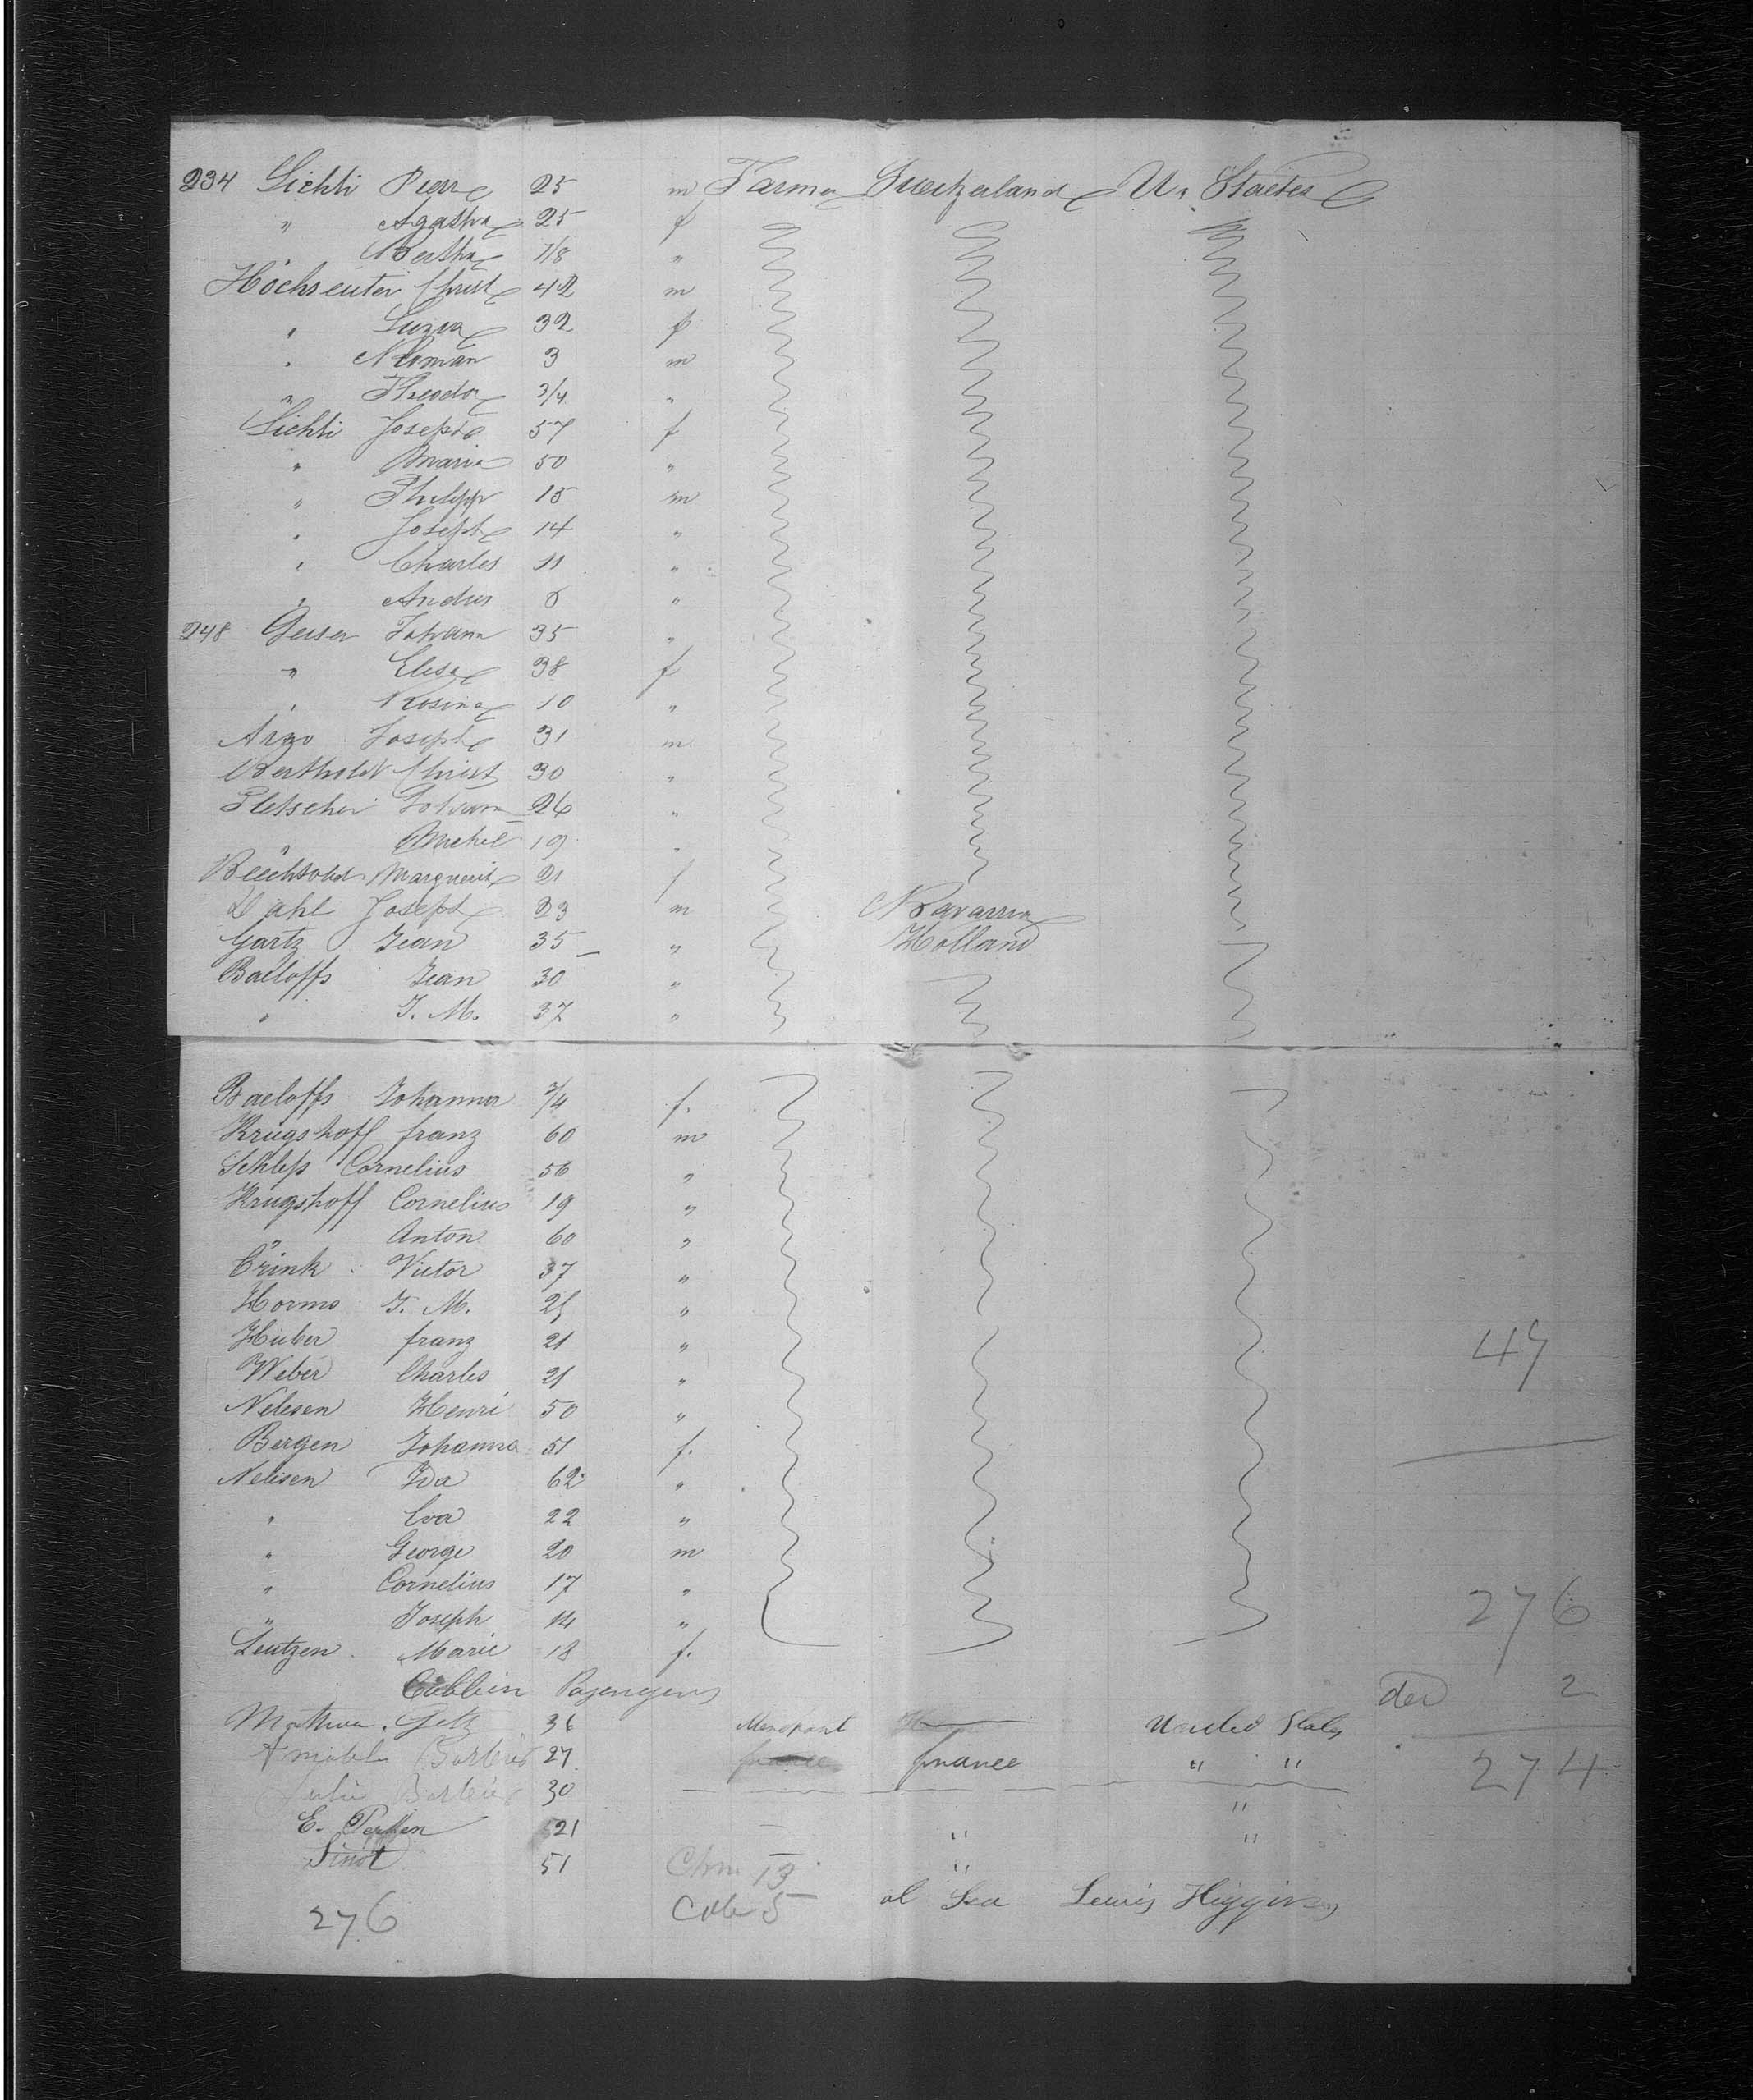 234 Lichti Pierre 25 m Farmer Sweitzerland U. Staetes
" Agatha 25 f
" Bertha 7/8 "
Höchseuter Christ 42 m
" Luzia 32 f
" Roman 3 m
" Theodor 3/4 "
Lichti Joseph 57 f
" Maria 50 "
" Philipp 15 m
" Joseph 14 "
" Charles 11 "
" Andres 8 "
248 Geiser Johann 35 "
" Elisa 38 f
" Rosina 10 "
Argo Joseph 31 m
Berthold Christ 30 "
Pletscher Johann 26 "
" Michel 19 "
Bechtold Marguerit 21 f
Dahl Joseph 23 m Bavaria
Gartz Jean 35 " Holland
Baeloffs Jean 30 "
" J. M. 37 "
Baeloffs Johanna 3/4 f.
Krugshoff franz 60 m
Schleps Cornelius 56 "
Krugshoff Cornelius 19 "
" Anton 60 "
Crink Victor 37 "
Horms J. M. 25 "
Huber franz 21 " 47
Weber Charles 21 "
Nelesen Henri 50 "
Bergen Johanna 51 f.
Nelesen Ida 62 "
" Eva 22 "
" George 20 m
" Cornelius 17 " 276
" Joseph 14 "
Leutzen Marie 18 f.
Cabbin Pasengers 2
Getz 36 United States
Barbier 27 france " " 274
Barbier 30 "
E. 21 " "
Sinot 51 "
276 at Sea Lewis Higgins